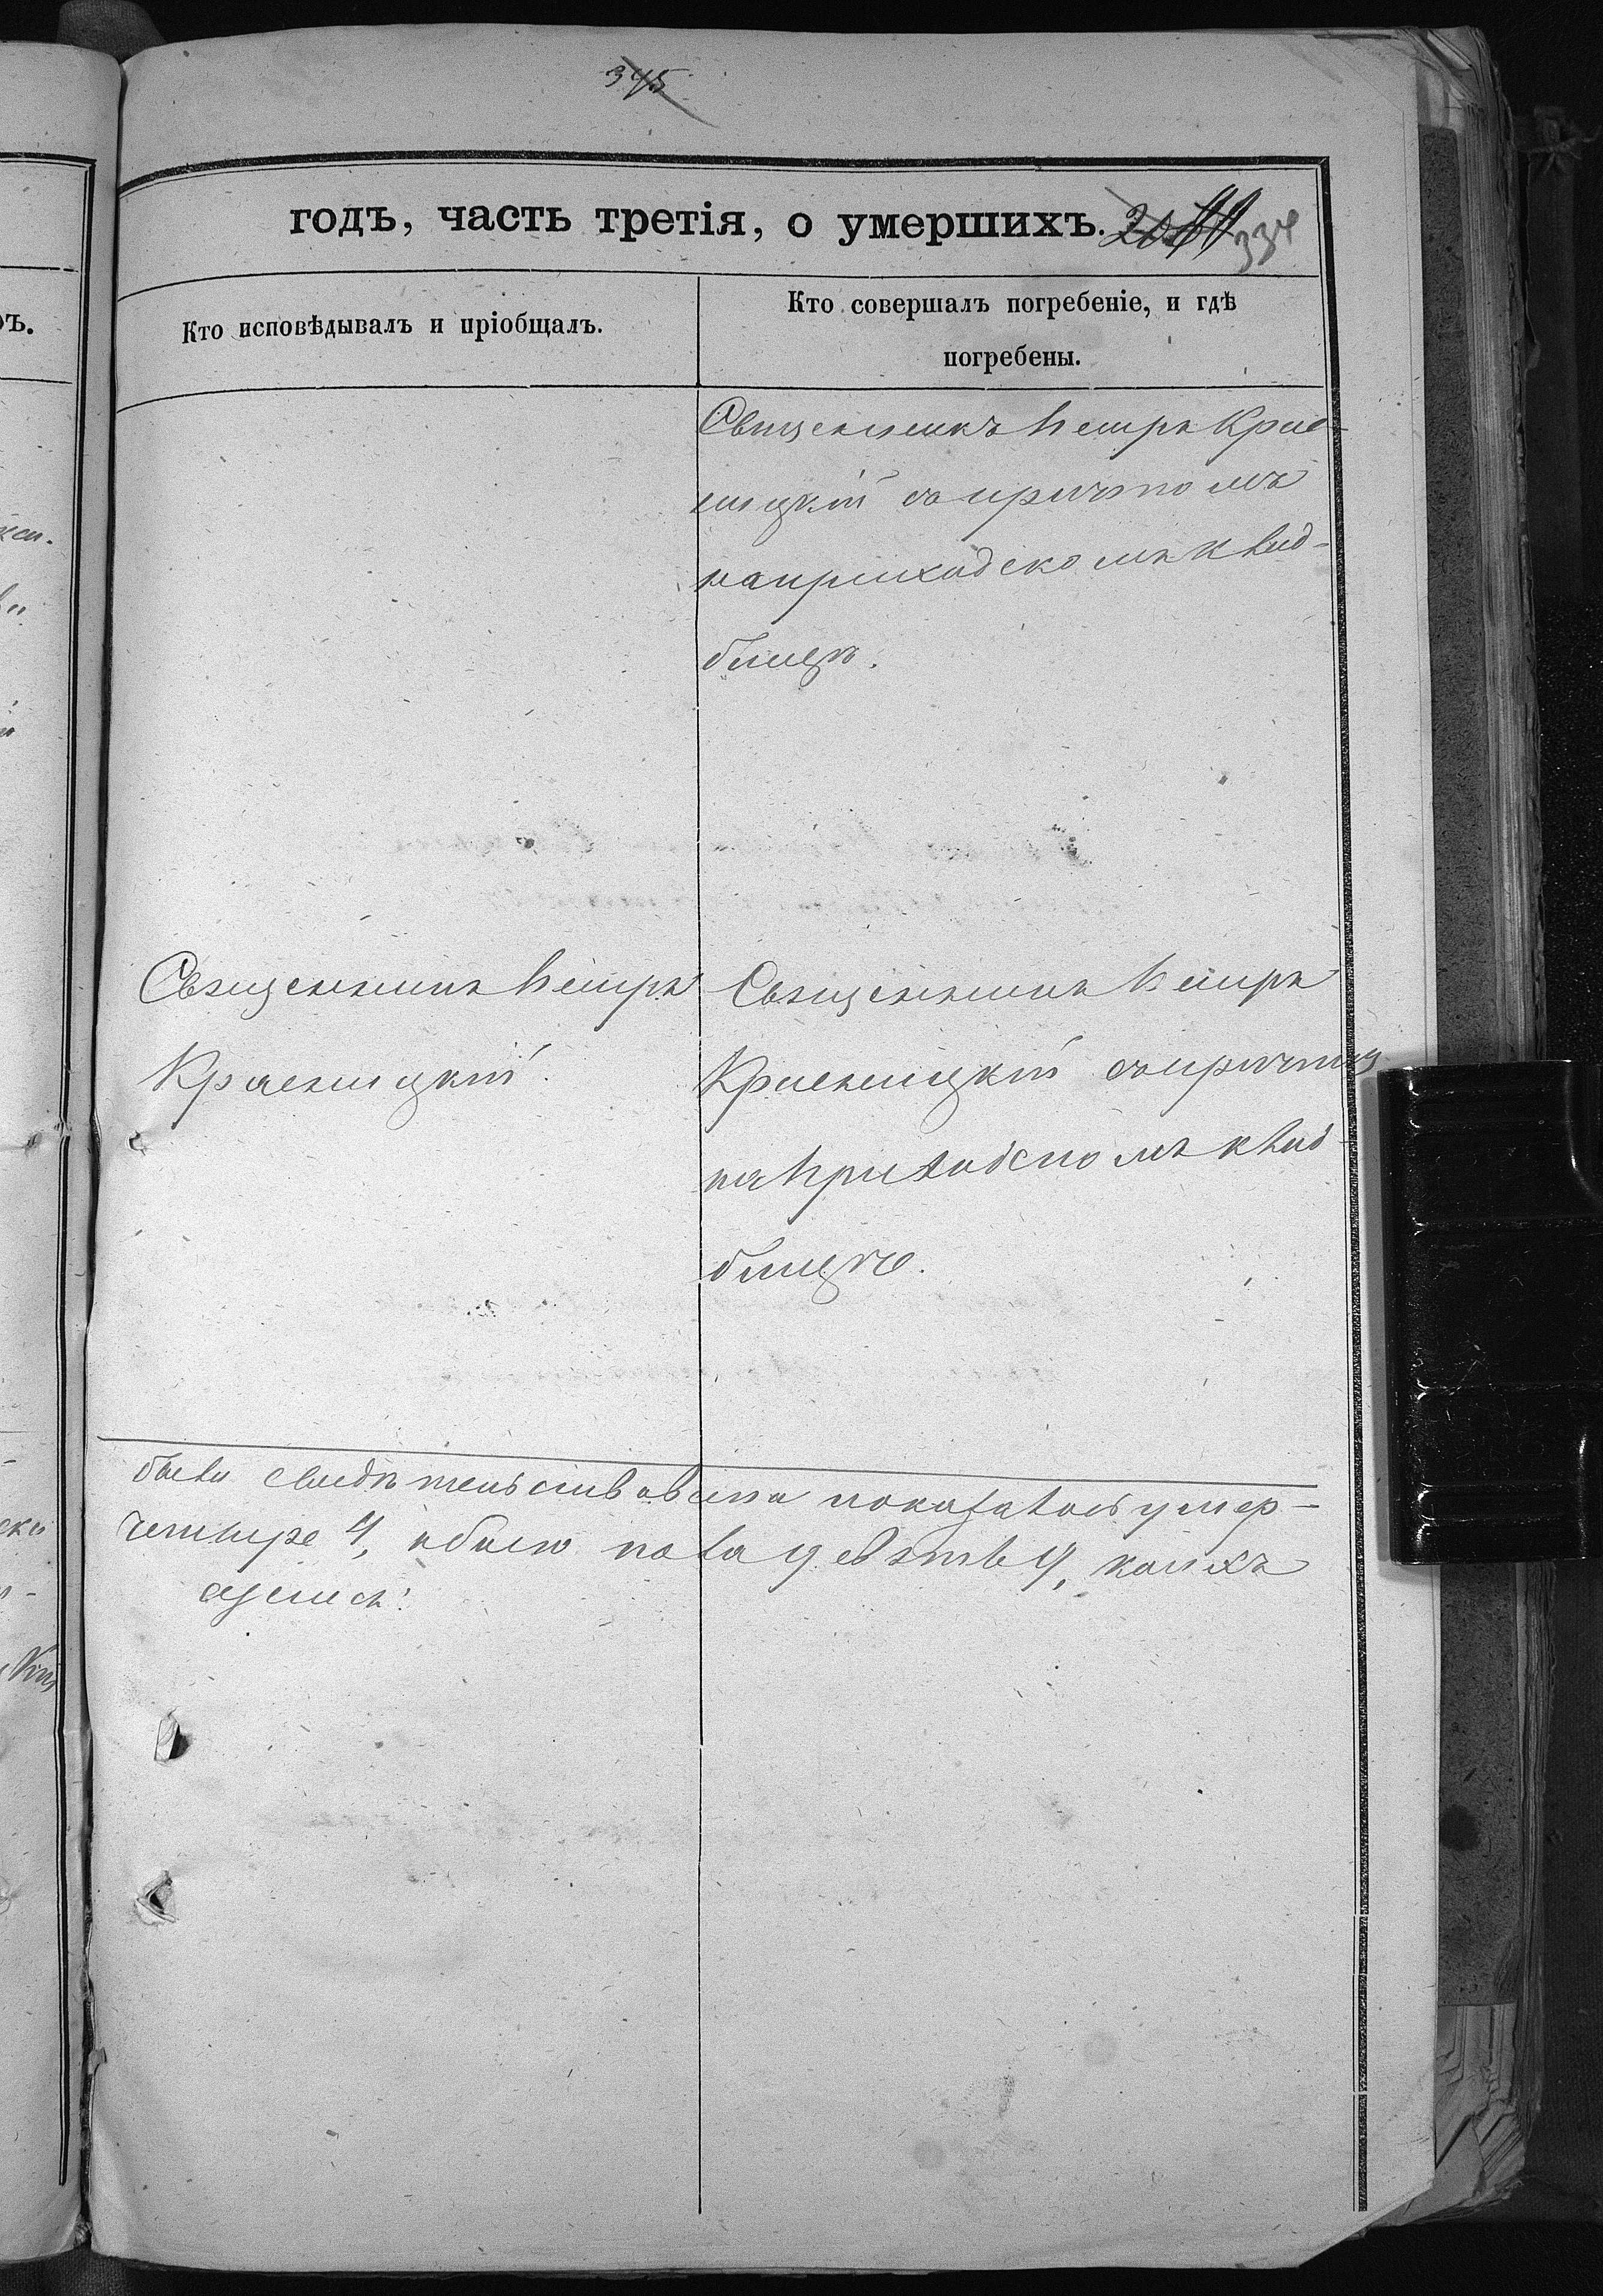 345
годъ, часть третія, о умершихъ. 334
Кто исповѣдывалъ и пріобщалъ.
Кто совершалъ погребеніе, и гдѣ
погребены.
Священникъ Петръ Крас-
ницкій съ причтомъ
на приходскомъ клад-
бищѣ.
Священникъ Петръ
Красницкій.
Священникъ Петръ
Красницкій съ причтомъ
на приходскомъ клад-
бищѣ.
были свидѣтельствована показалось умер-
четыре 4, обоего пола девять 9, коихъ